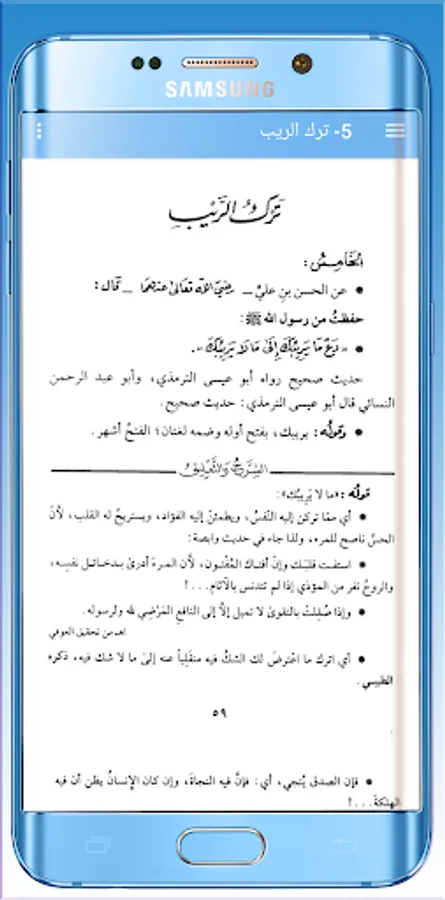 SAMSUNG
5- ترك الريب
تَرْكُ الرَّيْبِ
الْخَامِسُ:
● عن الحسن بنِ عليٍّ ــ رضي الله تعالى عنهما ــ قال:
حفظتُ من رسول الله ﷺ:
● «دَعْ مَا يَرِيبُكَ إِلَىٰ مَا لَا يَرِيبُكَ».
حديث صحيح رواه أبو عيسى الترمذي، وأبو عبد الرحمن
النسائي قال أبو عيسى الترمذي: حديث صحيح.
● وقولُه: يريبك، بفتح أوله وضمه لغتان؛ الفتحُ أشهر.
الشرح والتعليق
قولُه: «ما لا يَرِيبُك»:
● أي ممّا تركن إليه النّفسُ، ويطمئنّ إليه الفؤاد، ويستريحُ له القلب، لأنّ
الحسّ ناصح للمرء، ولذا جاء في حديث وابصة:
● استفت قلبك وإنْ أفتاك المُفْتون، لأن المرءَ أدرىٰ بدخائل نفسِه،
والروحُ تنفر من المؤذي إذا لم تتدنس بالآثام...!
● وإذا صُقِلتْ بالتقوىٰ لا تميل إلَّا إلى النافع المَرْضي لله ولرسوله.
اهـ من تحقيق العوفي
● أي اترك ما اعْترضَ لك الشكُّ فيه منقلِباً عنه إلىٰ ما لا شك فيه، ذكره
الطيبي.
٥٩
● فإن الصدق يُنجي، أي: فإنَّ فيه النجاةَ، وإن كان الإنسانُ يظن أن فيه
الهلكةَ...!